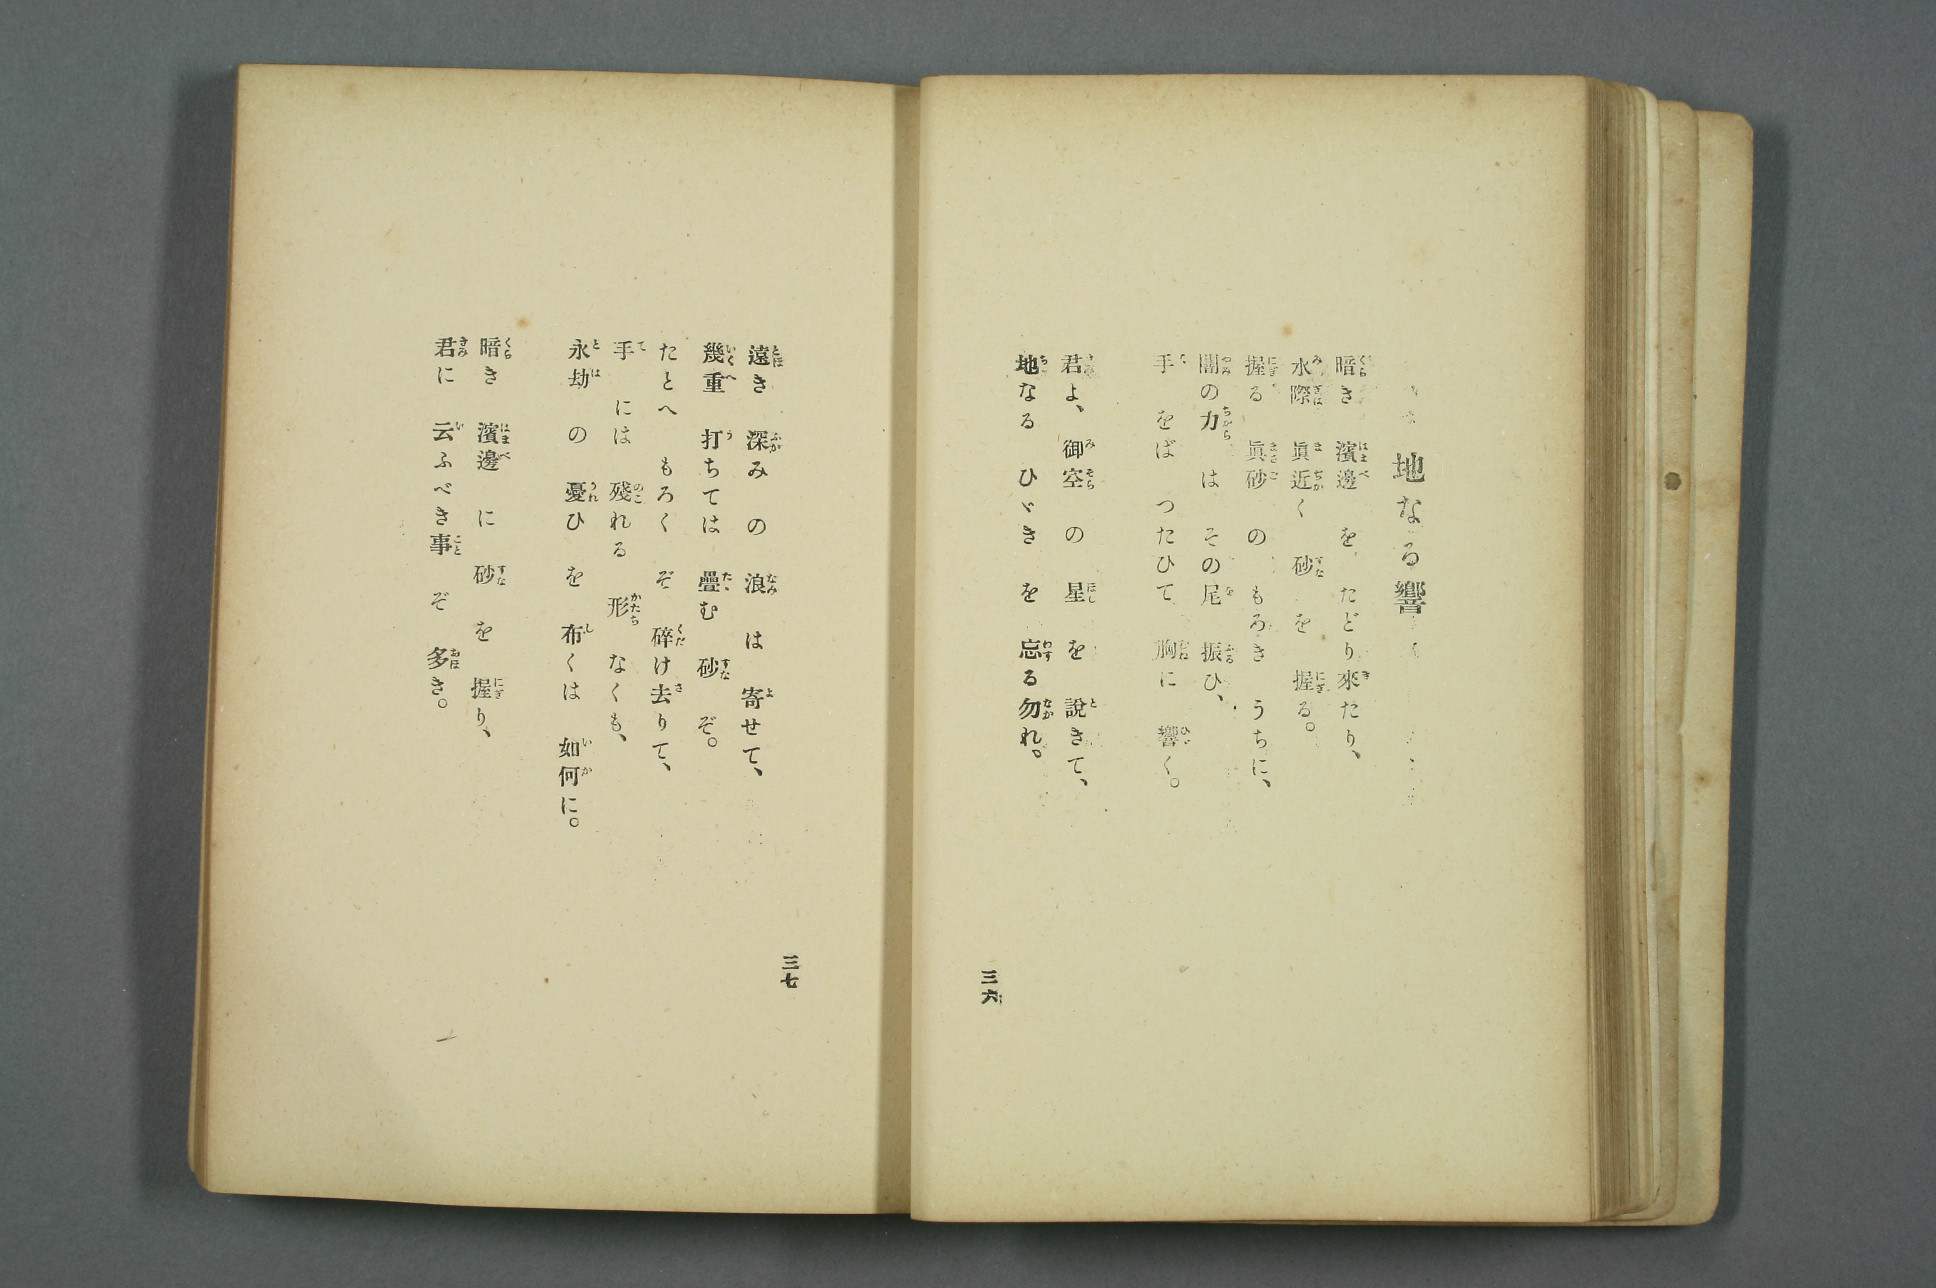 地なる響
暗き 濱邊 を たどり來たり、
水際 眞近く 砂 を 握る。
握る 眞砂 の もろき うちに、
闇の力 は その尾 振ひ、
手 をば つたひて 胸に 響く。
君よ、 御空 の 星 を 說きて、
地なる ひゞき を 忘る勿れ。
三六
遠き 深み の 浪 は 寄せて、
幾重 打ちては 疊む 砂 ぞ。
たとへ もろく ぞ 碎け去りて、
手 には 殘れる 形 なくも、
永劫 の 憂ひ を 布くは 如何に。
暗き 濱邊 に 砂 を 握り、
君に 云ふべき事 ぞ 多き。
三七